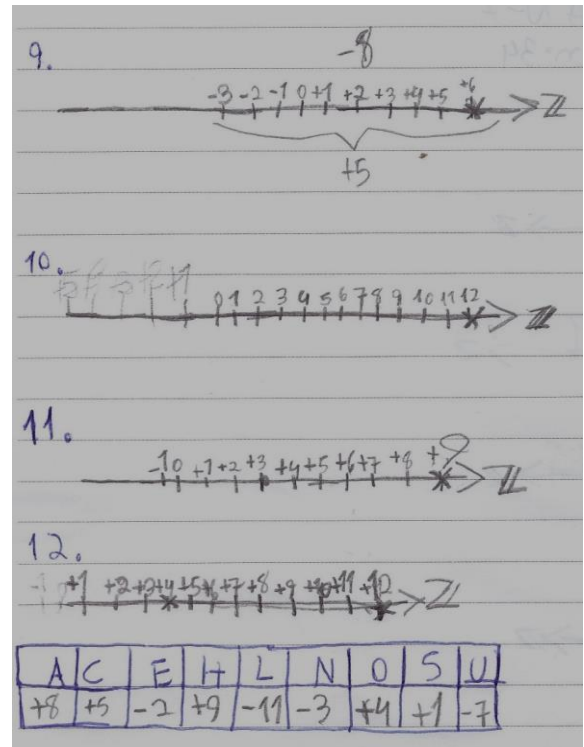 9.
-8
-3 -2 -1 0 +1 +2 +3 +4 +5 +6 ℤ
+5
10.
0 1 2 3 4 5 6 7 8 9 10 11 12 ℤ
11.
-1 0 +1 +2 +3 +4 +5 +6 +7 +8 +9 ℤ
12.
+1 +2 +3 +4 +5 +6 +7 +8 +9 +10 +11 +12 ℤ
A C E H L N O S U
+8 +5 -2 +9 -11 -3 +4 +1 -7